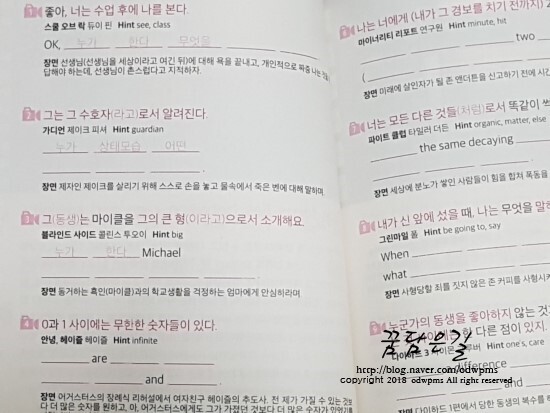 좋아, 너는 수업 후에 나를 본다.
스쿨 오브 락 듀이 핀 Hint see, class
OK, 누가 한다 무엇을
장면 선생님(선생님을 세상이라고 여긴 뒤)에 대해 욕을 끝내고, 개인적으로 짜증 나는
답해야 하는데, 선생님이 촌스럽다고 지적하자.
2
그는 그 수호자(라고)로서 알려진다.
가디언 제이크 피셔 Hint guardian
누가 상태모습 어떤
장면 제자인 제이크를 살리기 위해 스스로 손을 놓고 물속에서 죽은 벤에 대해 말하며
3
그(동생)는 마이클을 그의 큰 형(이라고)으로서 소개해요.
블라인드 사이드 콜린스 투오이 Hint big
누가 한다 Michael
장면 동거하는 흑인(마이클)과의 학교생활을 걱정하는 엄마에게 안심하라며
4
0과 1 사이에는 무한한 숫자들이 있다.
안녕, 헤이즐 헤이즐 Hint infinite
are
and .
장면 어거스터스의 장례식 리허설에서 여자친구 헤이즐의 추도사. 전 제가 가질 수 있는
다 더 많은 숫자를 원하고, 아, 어거스터스에게도 그가 가졌던 것보다 더 많은 숫자가
나는 너에게 (내가 그 경보를 치기 전까지) 2
마이너리티 리포트 연구원 Hint minute, hit
two
(
장면 미래에 살인자가 될 존 앤더튼을 신고하기 전에 시간
너는 모든 다른 것들(처럼)로서 똑같이 썩
파이트 클럽 타일러 더든 Hint organic, matter, else
the same decaying
장면 세상에 분노가 쌓인 사람들이 힘을 합쳐 폭동을
내가 신 앞에 섰을 때, 나는 무엇을 말하
그린마일 폼 Hint be going to, say
When
what
장면 사형당할 죄를 짓지 않은 존 커피를 사형시키
누군가의 동생을 좋아하지 않는 것
한 다른 점이 있지.
다이하드 3 사이먼 그루버 Hint one's, care
difference
and
장면 다이하드 1편에서 당한 동생의 복수를
꿈담은길
http://blog.naver.com/odwpms
copyright 2018 odwpms All rights reserved